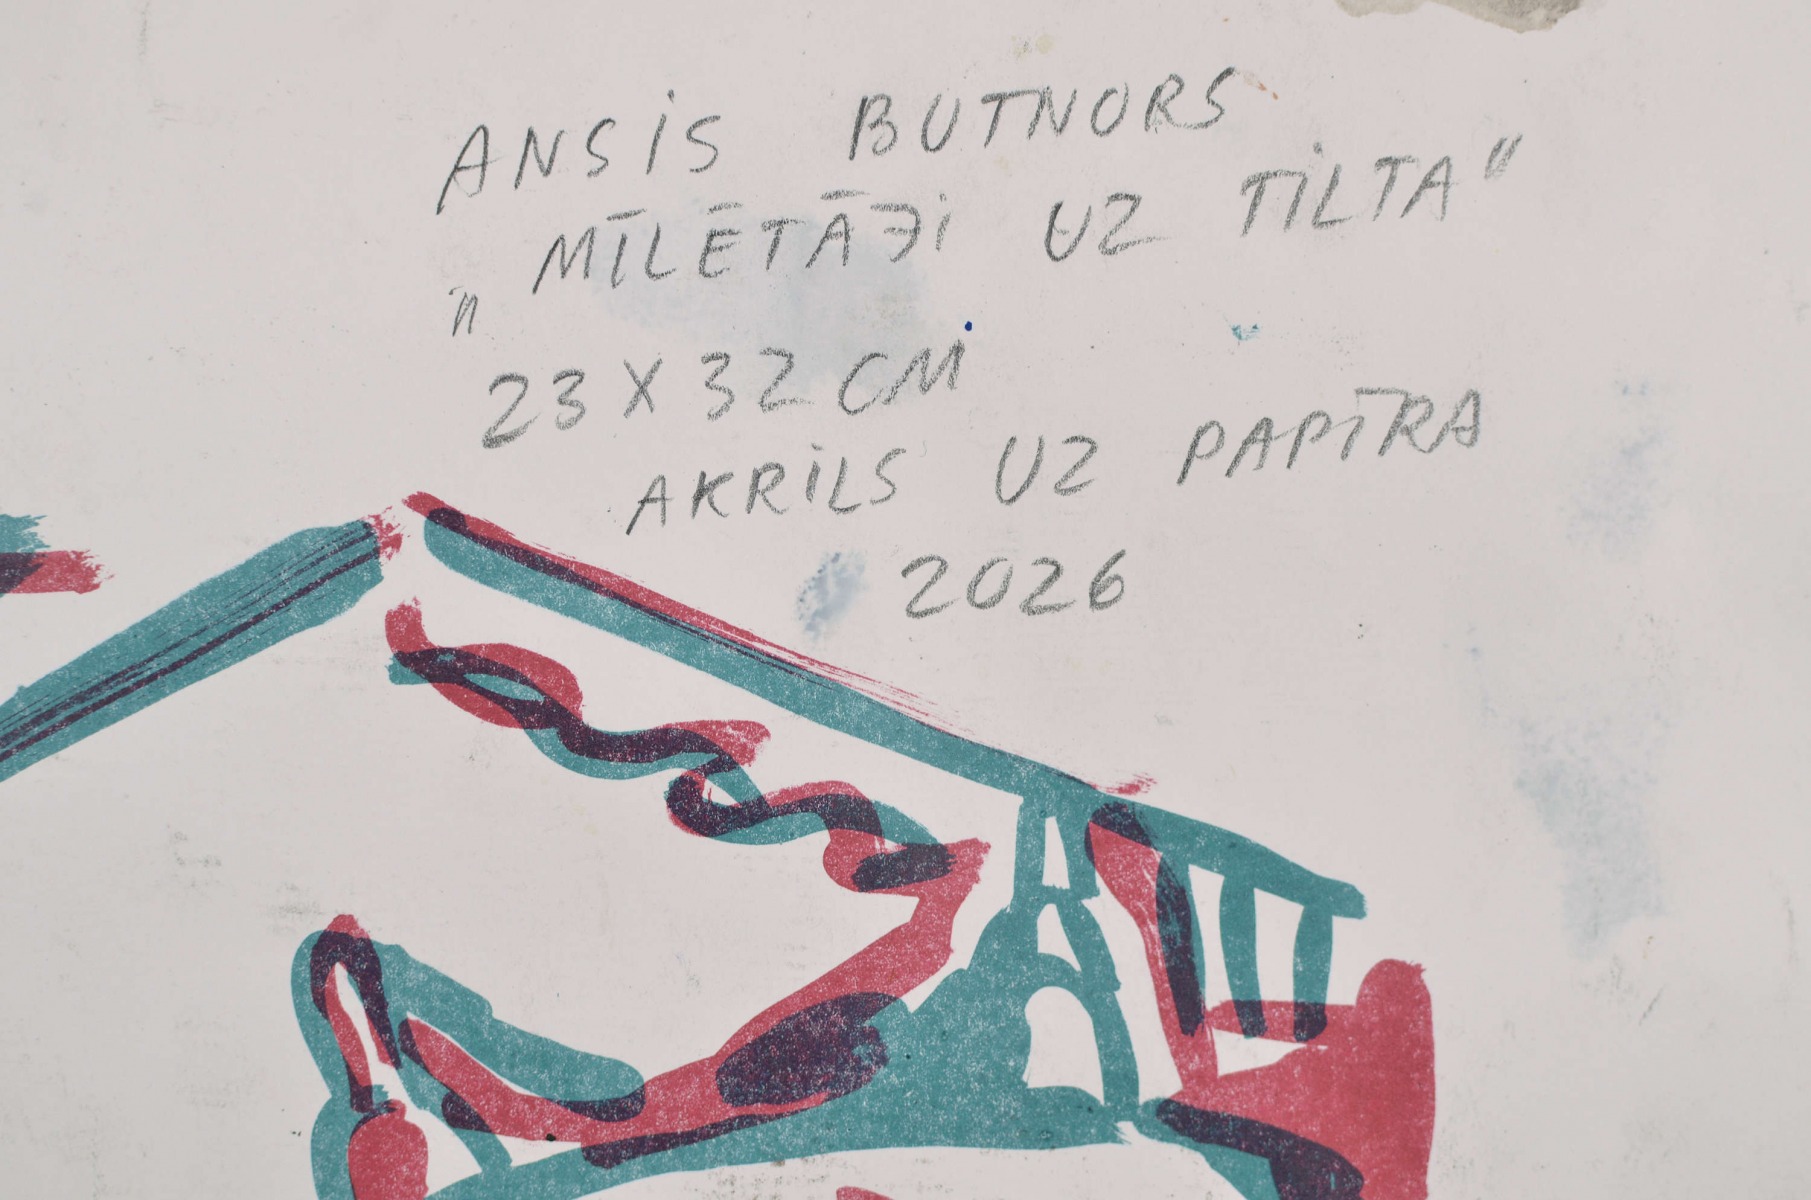 ANSIS BUTNORS
„MĪLĒTĀJI UZ TILTA"
23 X 32 CM
AKRILS UZ PAPĪRA
2026